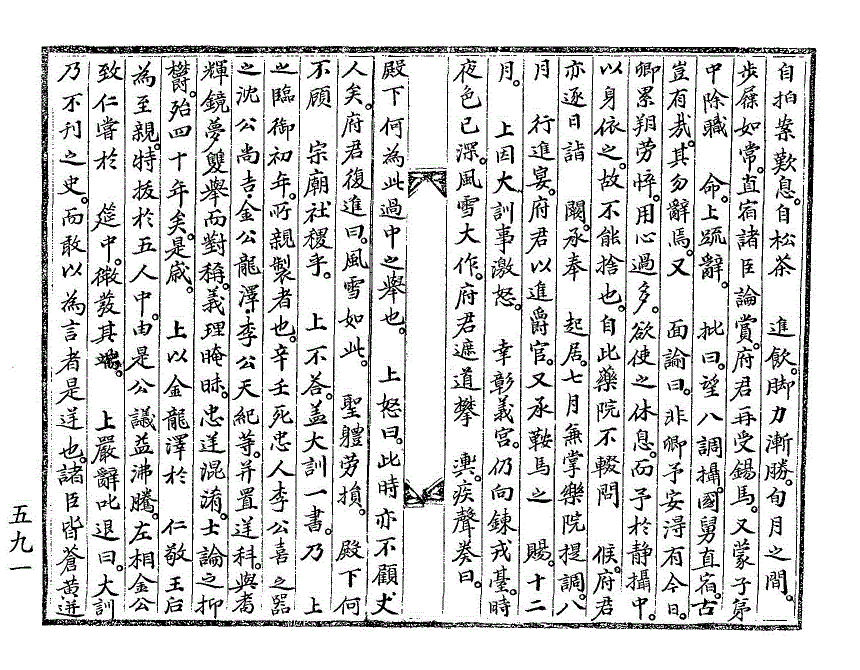 自拍案歎息。自松茶　進飮。脚力漸勝。旬月之間。
步屧如常。直宿諸臣論賞。府君再受錫馬。又蒙子弟
中除職　命。上疏辭。　批曰。望八調攝。國舅直宿。古
豈有哉。其勿辭焉。又　面諭曰。非卿予安得有今日。
卿累朔勞悴。用心過多。欲使之休息。而予於靜攝中。
以身依之。故不能捨也。自此藥院不輟問　候。府君
亦逐日詣　闕。承奉　起居。七月兼掌樂院提調。八
月　行進宴。府君以進爵官。又承鞍馬之　賜。十二
月。　上因大訓事激怒。　幸彰義宮。仍向鍊戎臺。時
夜色已深。風雪大作。府君遮道攀　輿。疾聲奏曰。
殿下何爲此過中之擧也。　上怒曰。此時亦不顧犬
人矣。府君復進曰。風雪如此。　聖體勞損。　殿下何
不顧　宗廟社稷乎。　上不答。盖大訓一書。乃　上
之臨御初年。所親製者也。辛壬死忠人李公喜之器
之沈公尚吉金公龍澤李公天紀等。并置逆科。與耇
輝鏡夢雙擧而對稱。義理晻昧。忠逆混淆。士論之抑
欝。殆四十年矣。是歲。　上以金龍澤於　仁敬王后
爲至親。特拔於五人中。由是公議益沸騰。左相金公
致仁嘗於　筵中。微發其端。　上嚴辭叱退曰。大訓
乃不刊之史。而敢以爲言者是逆也。諸臣皆蒼黃迸
五九一